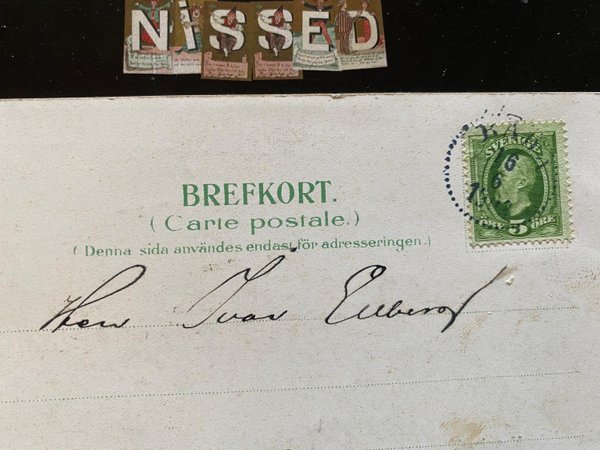 NISSED
BREFKORT.
(Carte postale.)
(Denna sida användes endast för adresseringen.)
SVERIGE
5 ÖRE
Herr Ivar